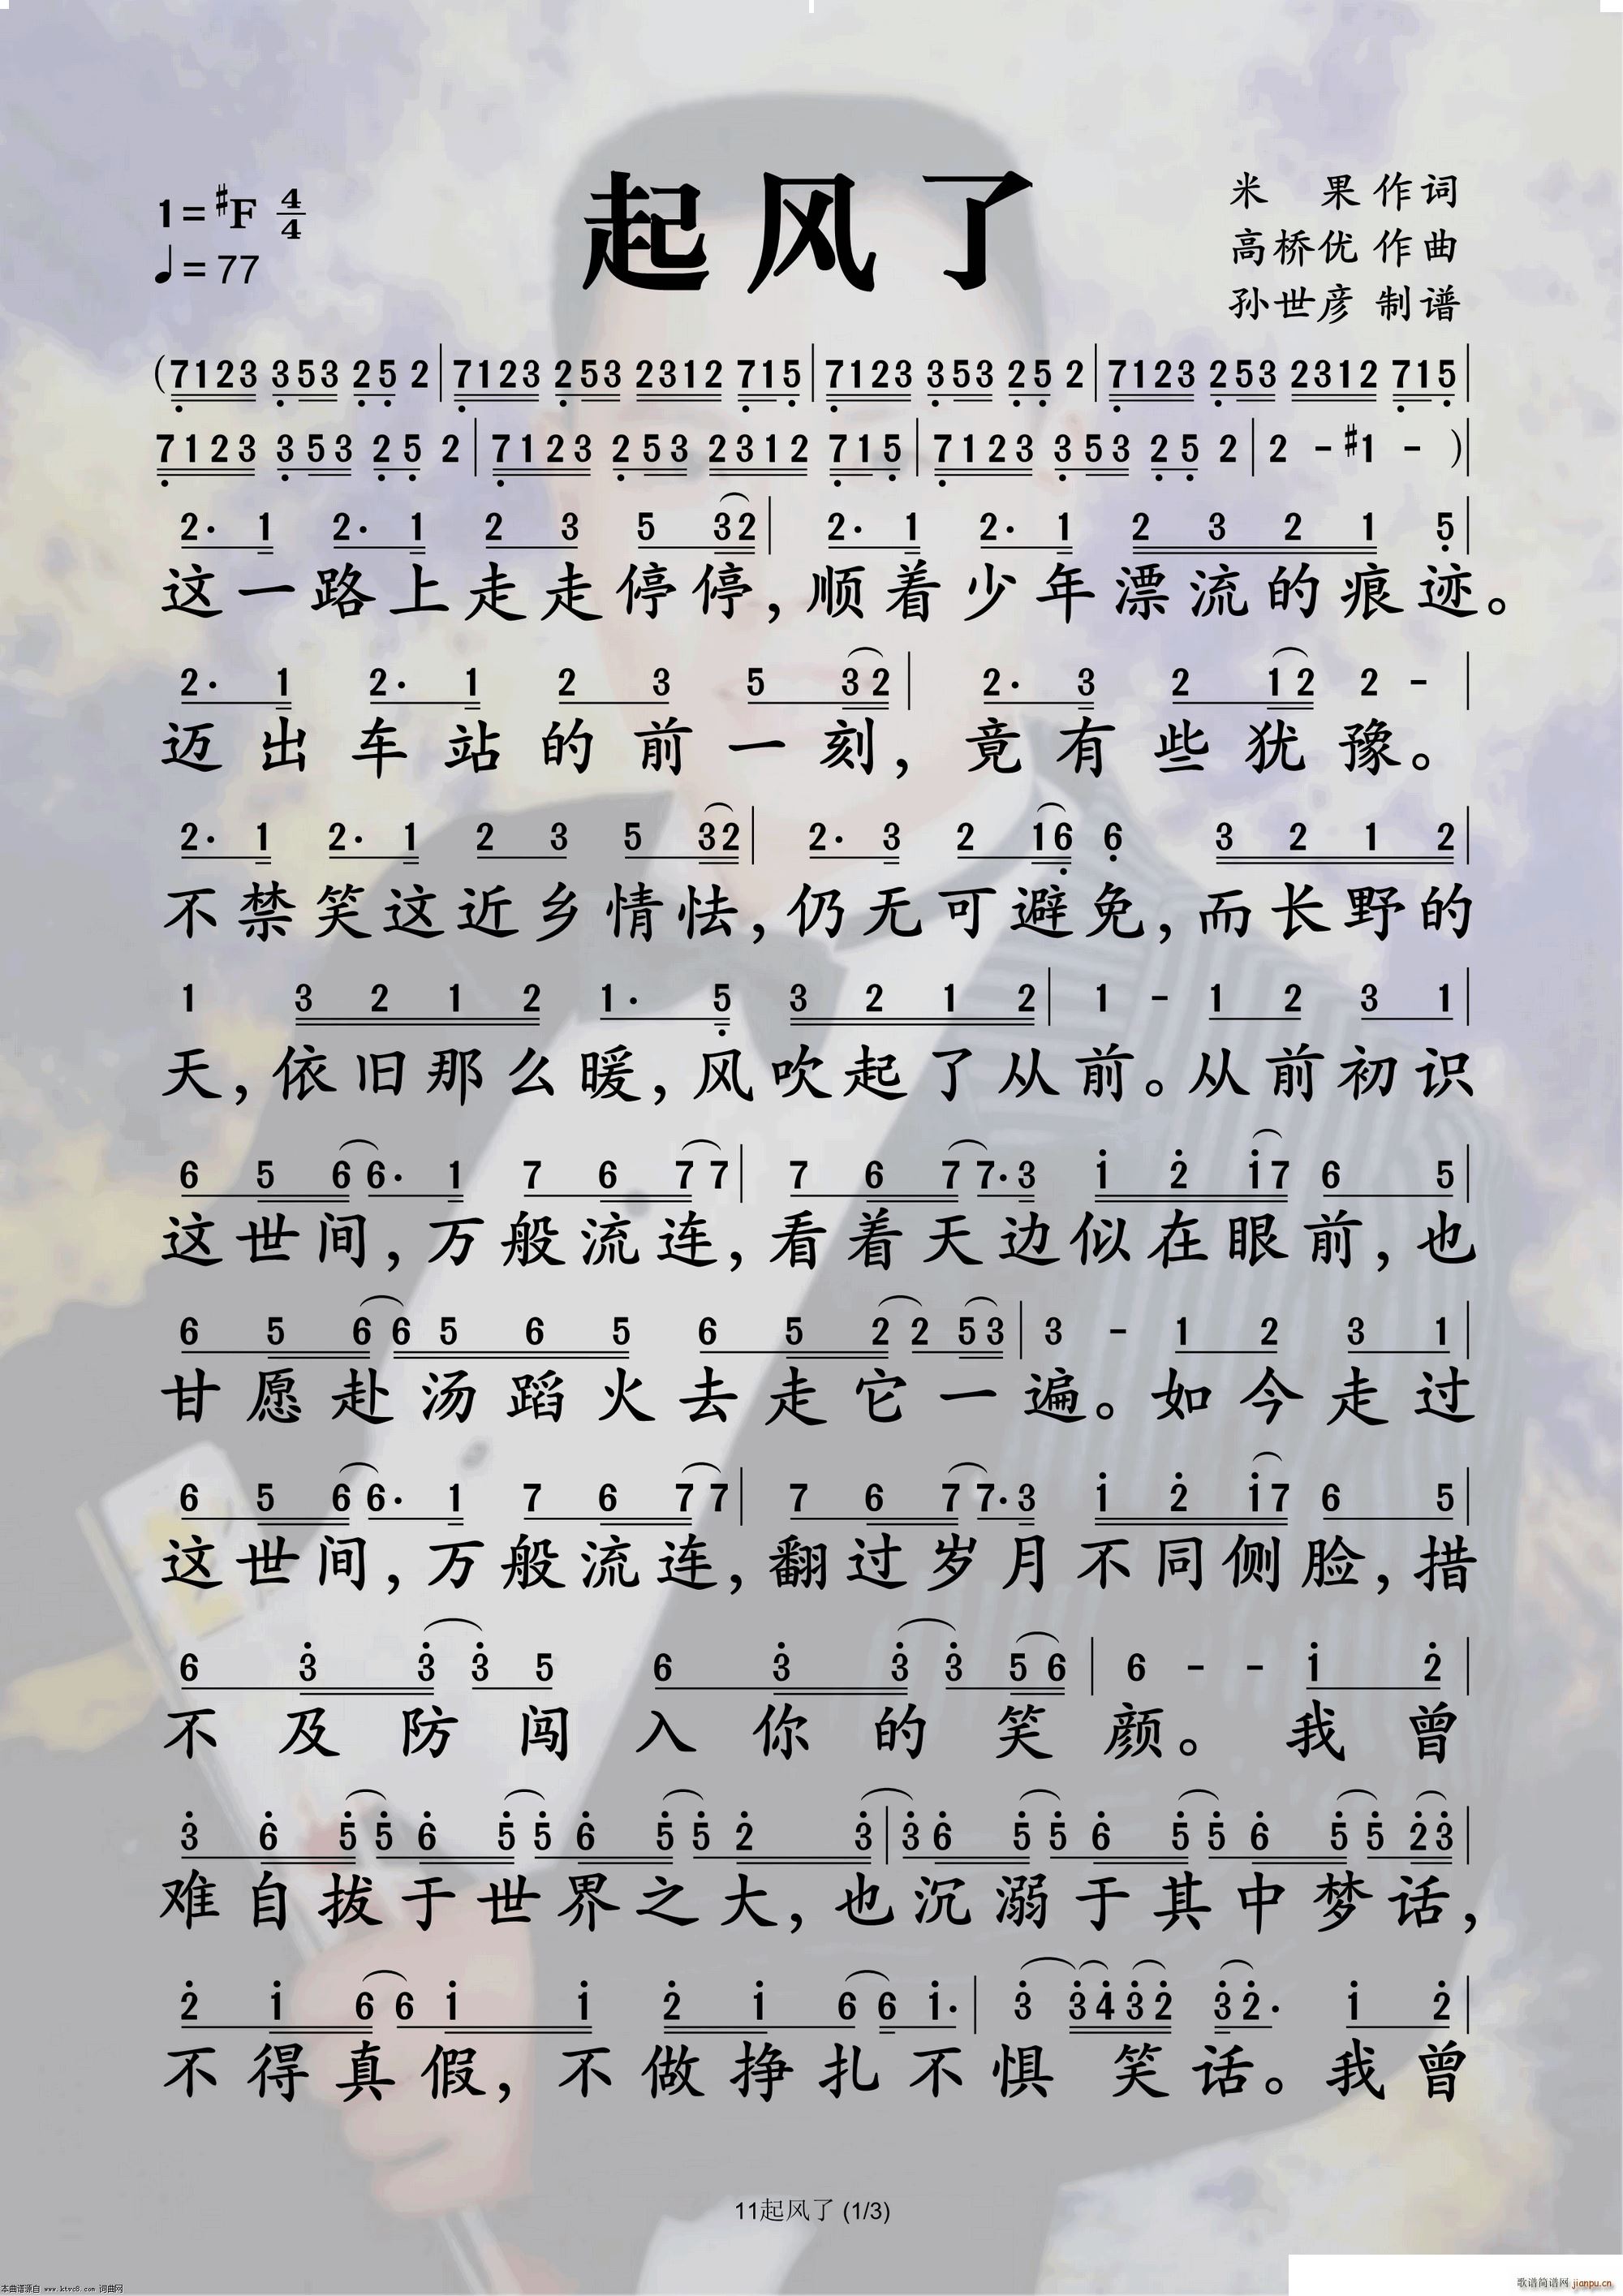 起风了
1=♯F 4/4
♩=77
米 果 作词
高桥优 作曲
孙世彦 制谱
(7123 353 25 2|7123 253 2312 715|7123 353 25 2|7123 253 2312 715|
7123 353 25 2|7123 253 2312 715|7123 353 25 2|2 - ♯1 - )|
2· 1 2· 1 2 3 5 32| 2· 1 2· 1 2 3 2 1 5|
这一路上走走停停,顺着少年漂流的痕迹。
2· 1 2· 1 2 3 5 32| 2· 3 2 12 2 - |
迈出车站的前一刻,竟有些犹豫。
2· 1 2· 1 2 3 5 32| 2· 3 2 16 6 3 2 1 2|
不禁笑这近乡情怯,仍无可避免,而长野的
1 3 2 1 2 1· 5 3 2 1 2| 1 - 1 2 3 1|
天,依旧那么暖,风吹起了从前。从前初识
6 5 6 6· 1 7 6 7 7| 7 6 7 7· 3 1 2 1 7 6 5|
这世间,万般流连,看着天边似在眼前,也
6 5 6 6 5 6 5 6 5 2 2 5 3| 3 - 1 2 3 1|
甘愿赴汤蹈火去走它一遍。如今走过
6 5 6 6· 1 7 6 7 7| 7 6 7 7· 3 1 2 1 7 6 5|
这世间,万般流连,翻过岁月不同侧脸,措
6 3 3 3 5 6 3 3 3 5 6| 6 - - 1 2|
不及防闯入你的笑颜。我曾
3 6 5 5 6 5 5 6 5 5 2 3|3 6 5 5 6 5 5 6 5 5 2 3|
难自拔于世界之大,也沉溺于其中梦话,
2 1 6 6 1 1 2 1 6 6 1·| 3 3 4 3 2 3 2· 1 2|
不得真假,不做挣扎不惧笑话。我曾
11起风了 (1/3)
本曲谱源自 www.ktvc8.com 词曲网
歌谱简谱网 jianpu.cn